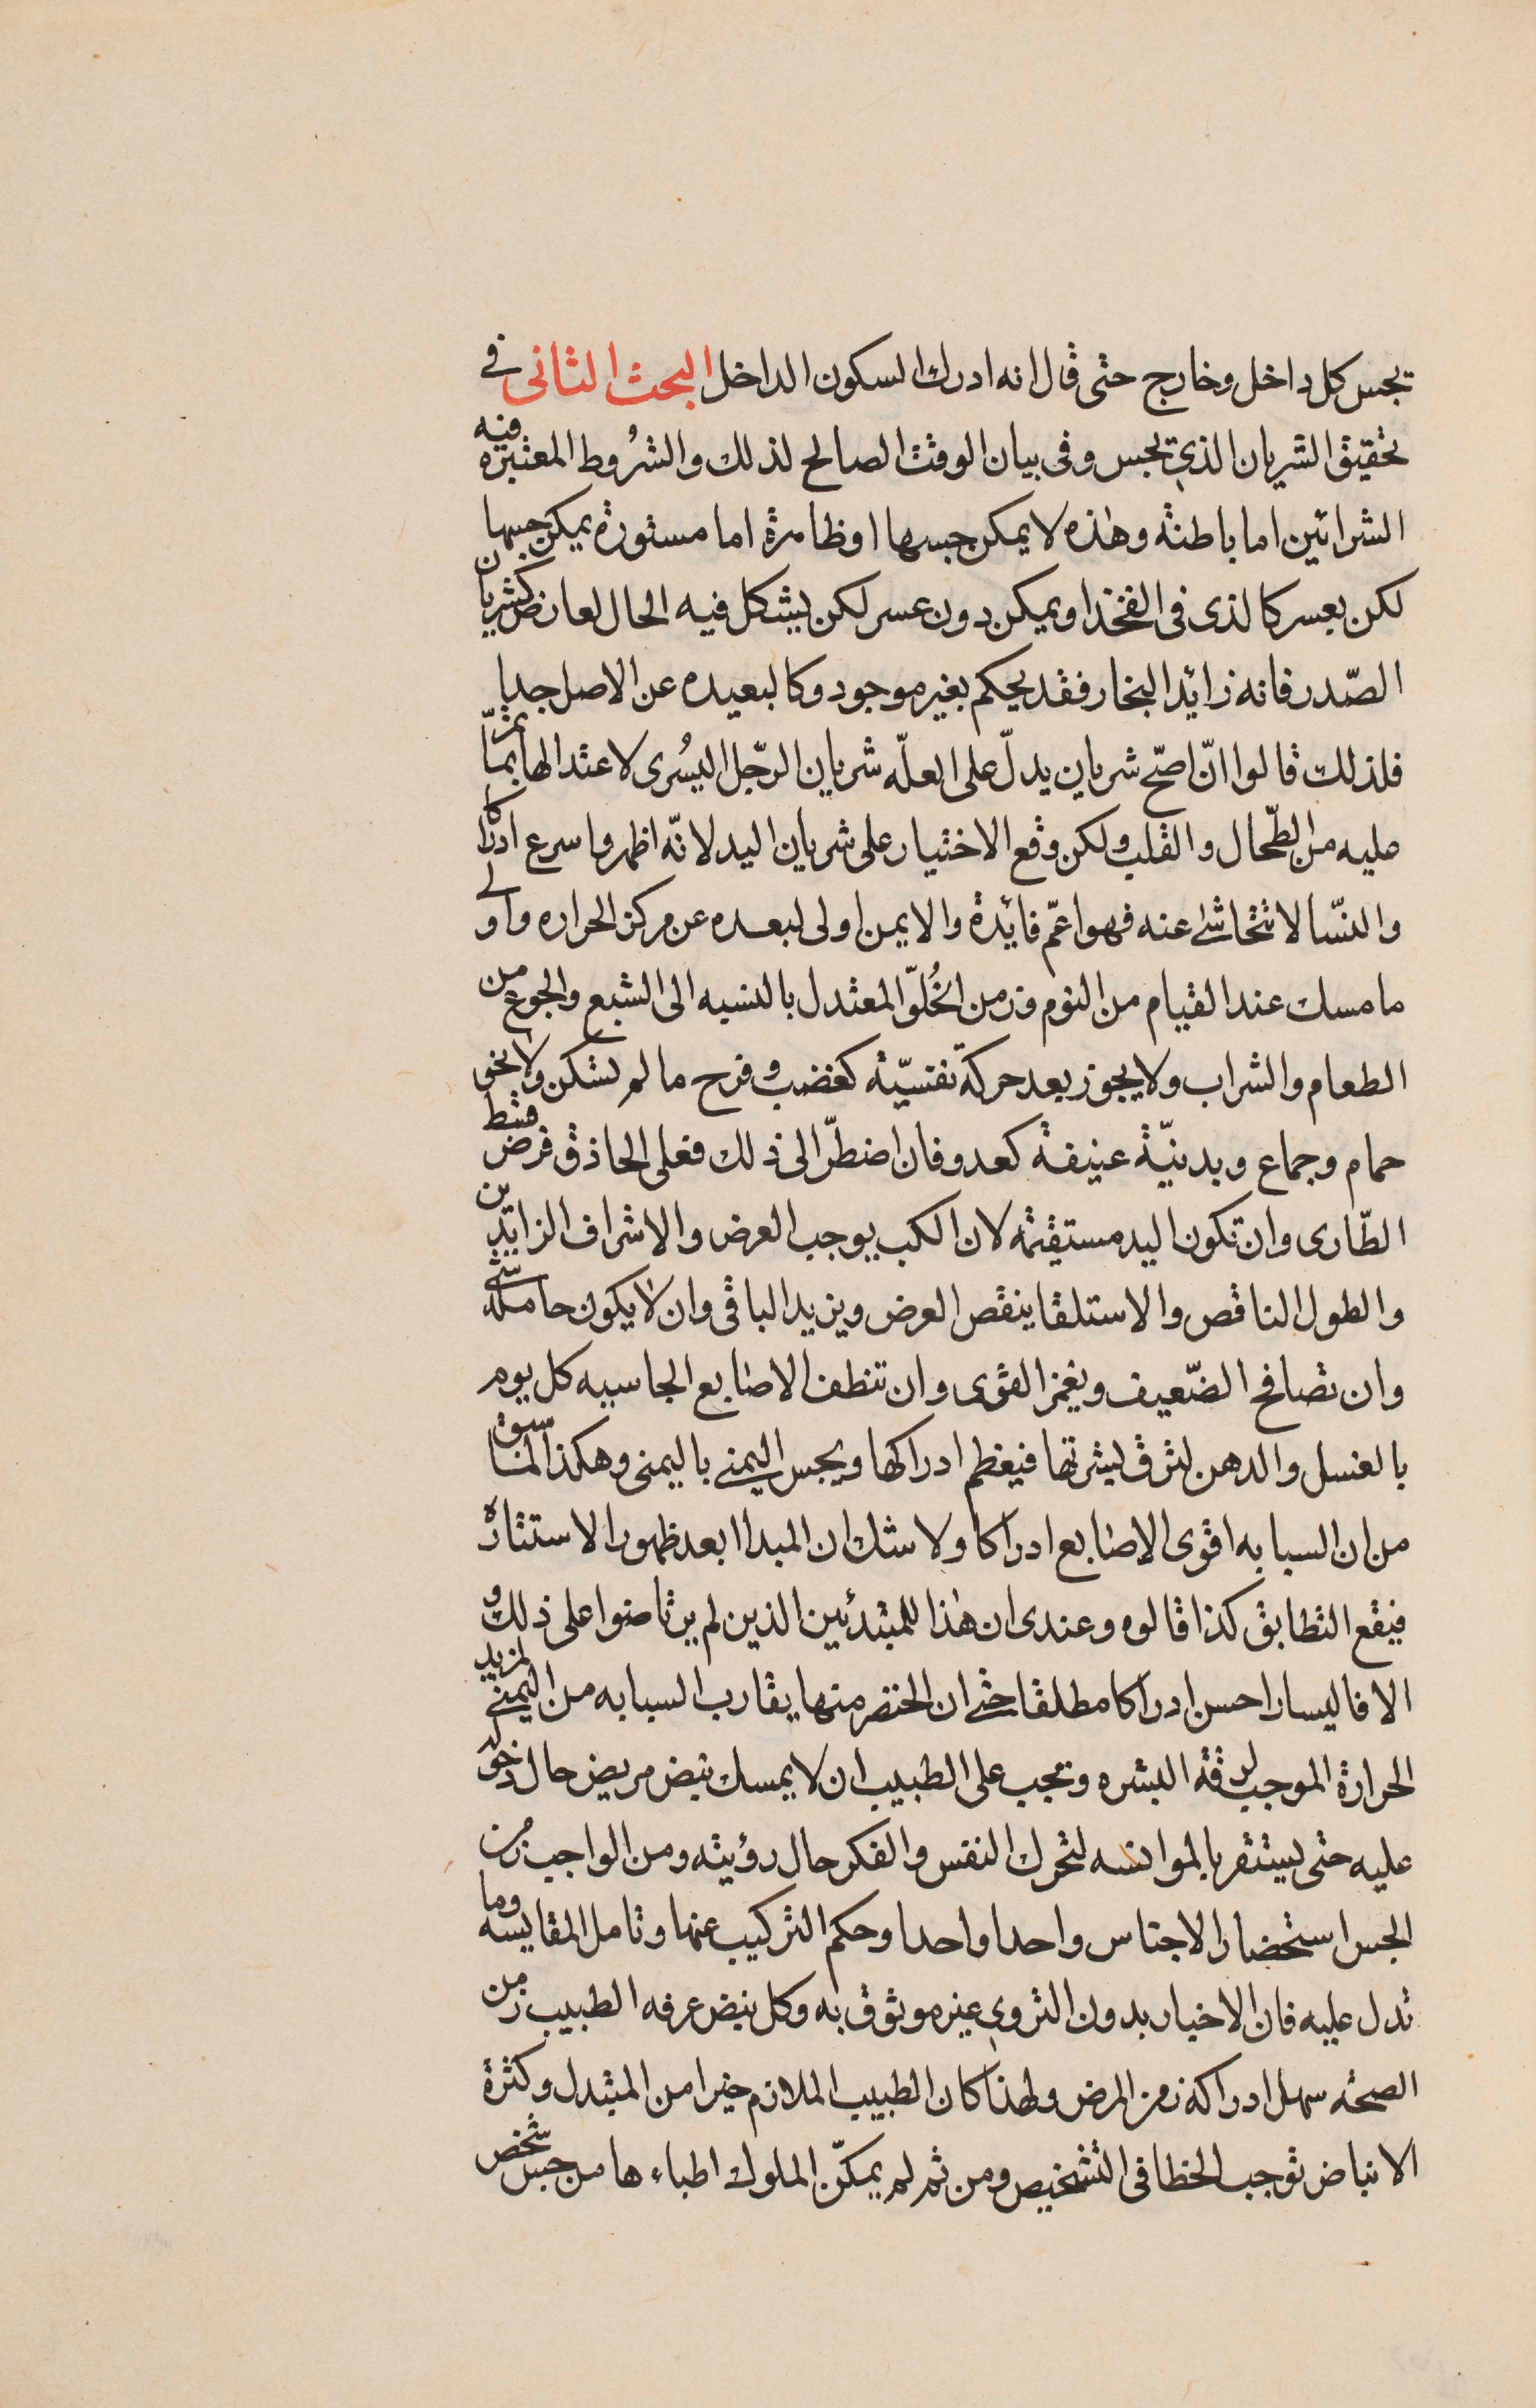 يجس كل داخل وخارج حتى قال انه ادرك السكون الداخل البحث الثانى فى
تحقيق الشريان الذي يجس وفى بيان الوقت الصالح لذلك والشروط المعتبرة فيه
الشرائين اما باطنة وهذه لا يمكن جسها او ظاهرة اما مستورة يمكن جسها
لكن بعسر كالذى فى الفخذ او يمكن دون عسر لكن يشكل فيه الحال لعارض كشريان
الصّدر فانه زائد البخار فقد يحكم بغير موجود وكالبعيده عن الاصل جدا
فلذلك قالوا انّ اصحّ شريان يدلّ على العلّه شريان الرّجل اليسُرى لاعتدالها بما تمرّ
عليه من الطّحال والقلب ولكن وقع الاختيار على شريان اليد لانّه اظهر واسرع ادراكا
والنسّا لا تتحاشى عنه فهو اعمّ فائدة والايمن اولى لبعده عن مركز الحراره واولى
ما مسك عند القيام من النوم وزمن الخُلوّ المعتدل بالنسبه الى الشبع والجوع من
الطعام والشراب ولا يجوز بعد حركة نفسيّة كغضب وفرح ما لم تسكن ولا نحو
حمام وجماع وبدنيّة عنيفة كعدو فان اضطرّ الى ذلك فعلى الحاذق فرض قسط
الطّارى وان تكون اليد مستقيمة لان الكب يوجب العرض والاشراف الزايدين
والطول الناقص والاستلقا ينقص العرض ويزيد الباقى وان لا يكون حاملة شئ
وان تصافح الضّعيف ويغمز القوى وان تنظف الاصابع الجاسيه كل يوم
بالغسل والدهن لترق بشرتها فيعظم ادراكها ويجس اليمنى باليمنى وهكذا لما سبق
من ان السبابه اقوى الاصابع ادراكا ولا شك ان المبدا ابعد ظهورا لاستتاره
فيقع التطابق كذا قالوه وعندى ان هذا للمبتدئين الذين لم يرتاضوا على ذلك و
الا فاليسار احسن ادراكا مطلقا حتى ان الخنصر منها يقارب السبابه من اليمنى لمزيد
الحرارة الموجب لرقة البشره ويجب على الطبيب ان لا يمسك نبض مريض حال دخوله
عليه حتى يستقر بالموانسه لتحرك النفس والفكر حال رؤيته ومن الواجب زمن
الجس استحضار الاجناس واحدا واحدا وحكم التركيب عنها وتامل المقايسه وما
تدل عليه فان الاخبار بدون التروي غير موثوق به وكل نبض عرفه الطبيب زمن
الصحه سهل ادراكه زمن المرض ولهذا كان الطبيب الملازم خيرا من المتبدل وكثرة
الانباض توجب الخطا فى التشخيص ومن ثم لم يمكنّ الملوك اطباءها من جس شخص